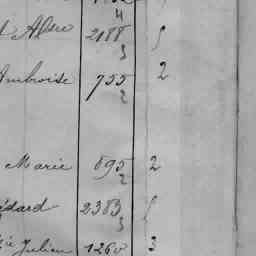 4
Alsre 2188
3
Ambroise 755 2
2
Marie 695 2
2
édard 2383
3
Julien 1260 3